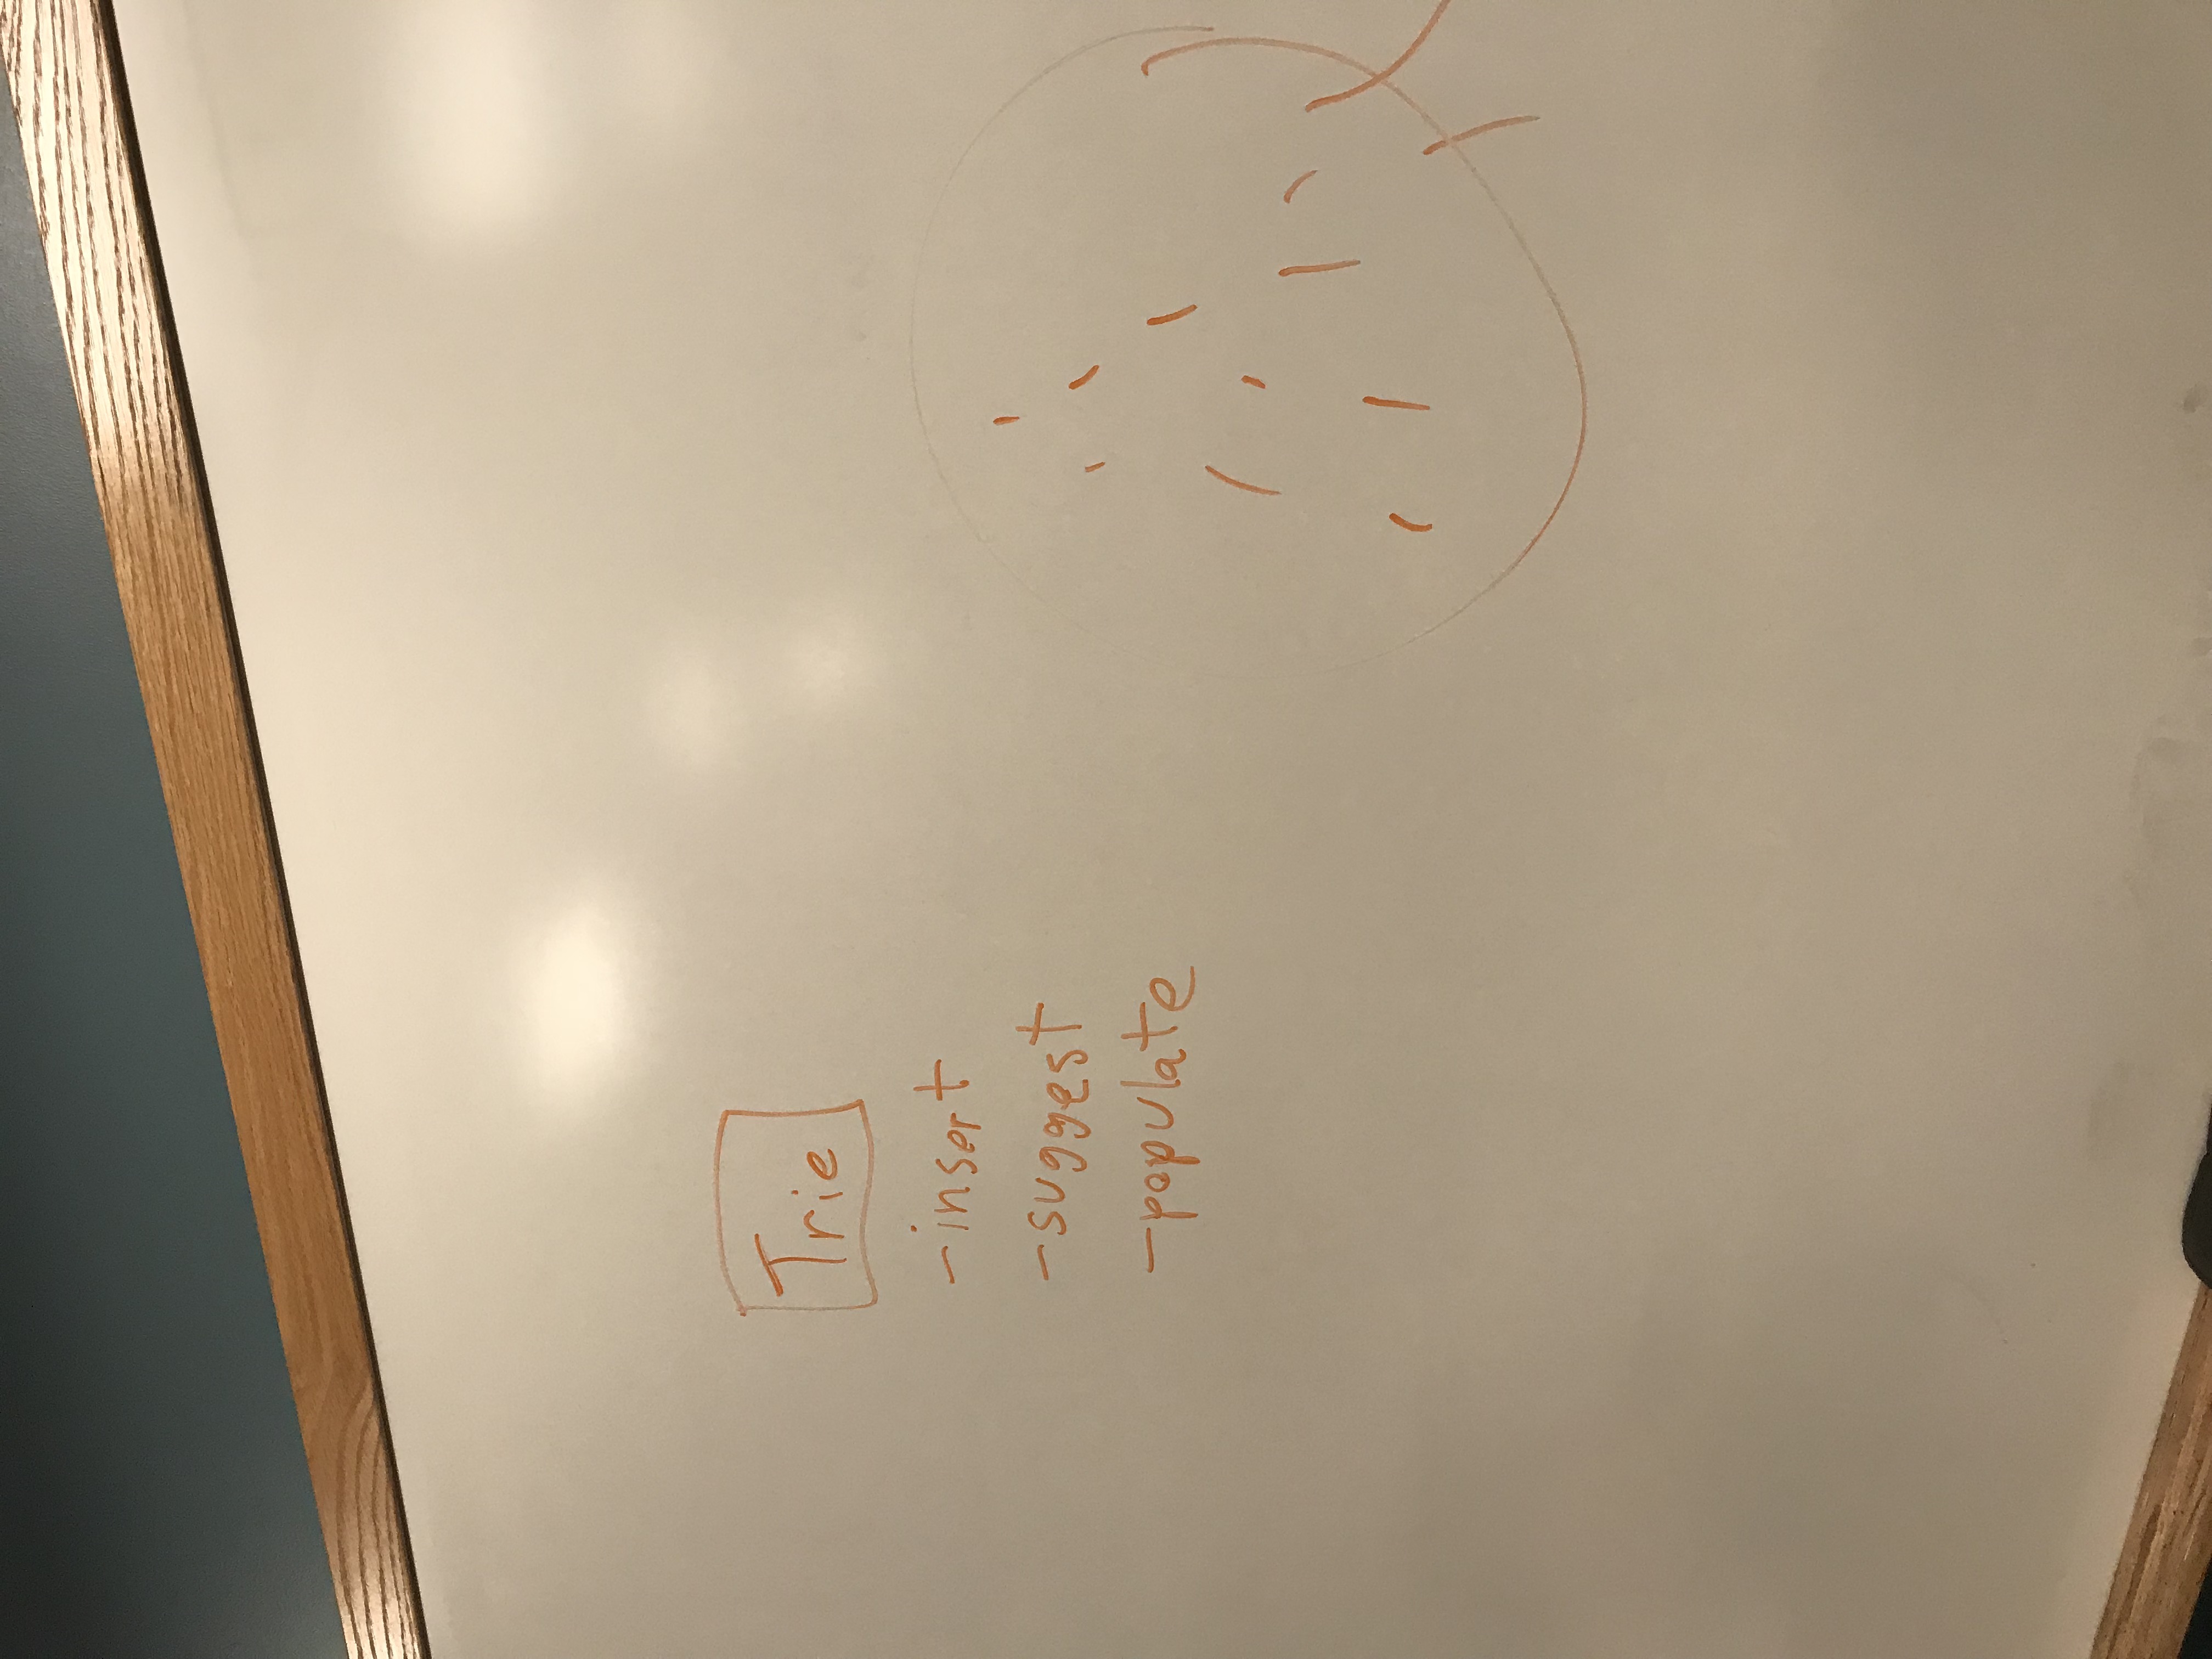 Trie
-insert
-suggest
-populate